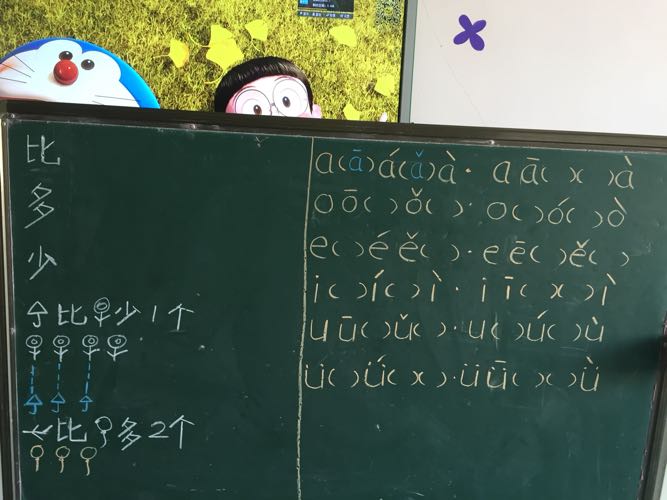 比
多
少
比 少1个
比 多2个
a(ā)á(ǎ)à. a ā( )( )à
o ō( )ǒ( ). o( )ó( )ò
e( )é ě( ). e ē( )ě( )
i( )í( )ì. i ī( )( )ì
u ū( )ǔ( ). u( )ú( )ù
ü( )ǘ( )( ). ü ǖ( )( )ǜ